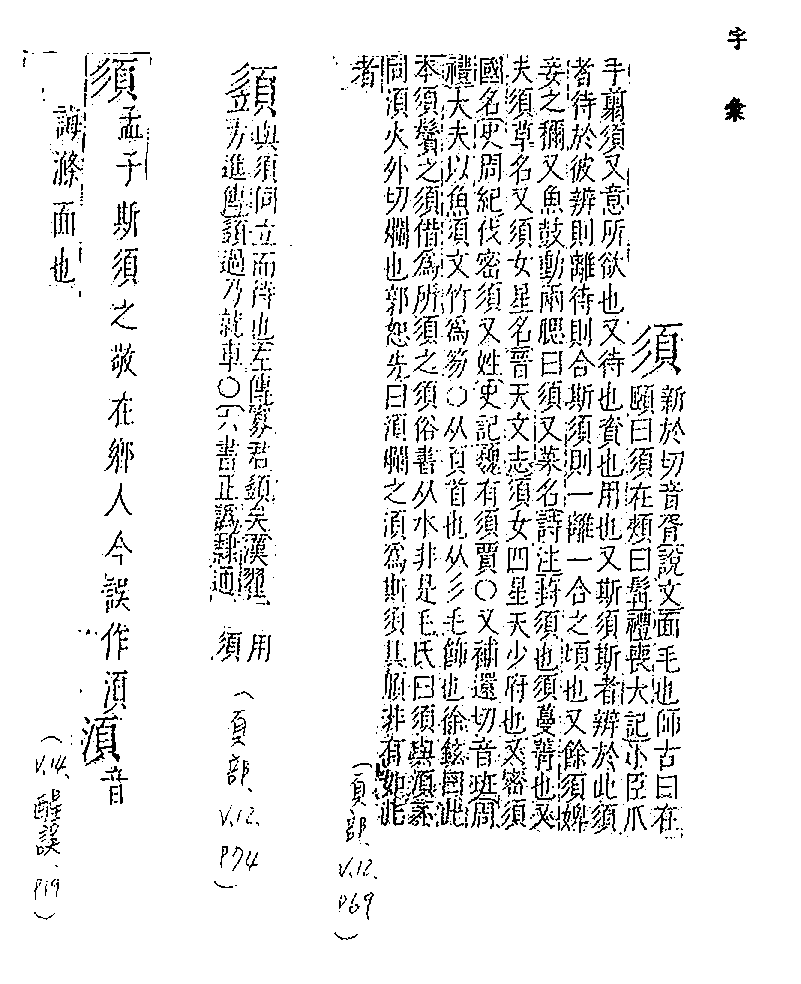 字彙
須
新於切音胥說文面毛也師古曰在
頤曰須在頰曰髯禮喪大記小臣爪
手翦須又意所欲也又待也資也用也又斯須斯者辨於此須
者待於彼辨則離待則合斯須則一離一合之頃也又餘須婢
妾之稱又魚鼓動兩腮曰須又菜名詩注葑須也須蔓菁也又
夫須草名又須女星名晉天文志須女四星天少府也又密須
國名史周紀伐密須又姓史記魏有須賈○又補還切音班周
禮大夫以魚須文竹為笏○从頁首也从彡毛飾也徐鉉曰此
本須鬢之須借為所須之須俗書从水非是毛氏曰須與湏
同湏火外切爛也郭恕先曰湏爛之湏為斯須其順非有如此
者
(頁部 V.12. P69)
䇓
與須同立而待也左傳寡君䇓矣漢翟
方進傳䇓過乃就車○六書正譌隸通
用
須
(頁部 V.12. P74)
須
孟子斯須之敬在鄉人今誤作湏
湏
音
誨滌面也
(V.14. 醒誤. P19)